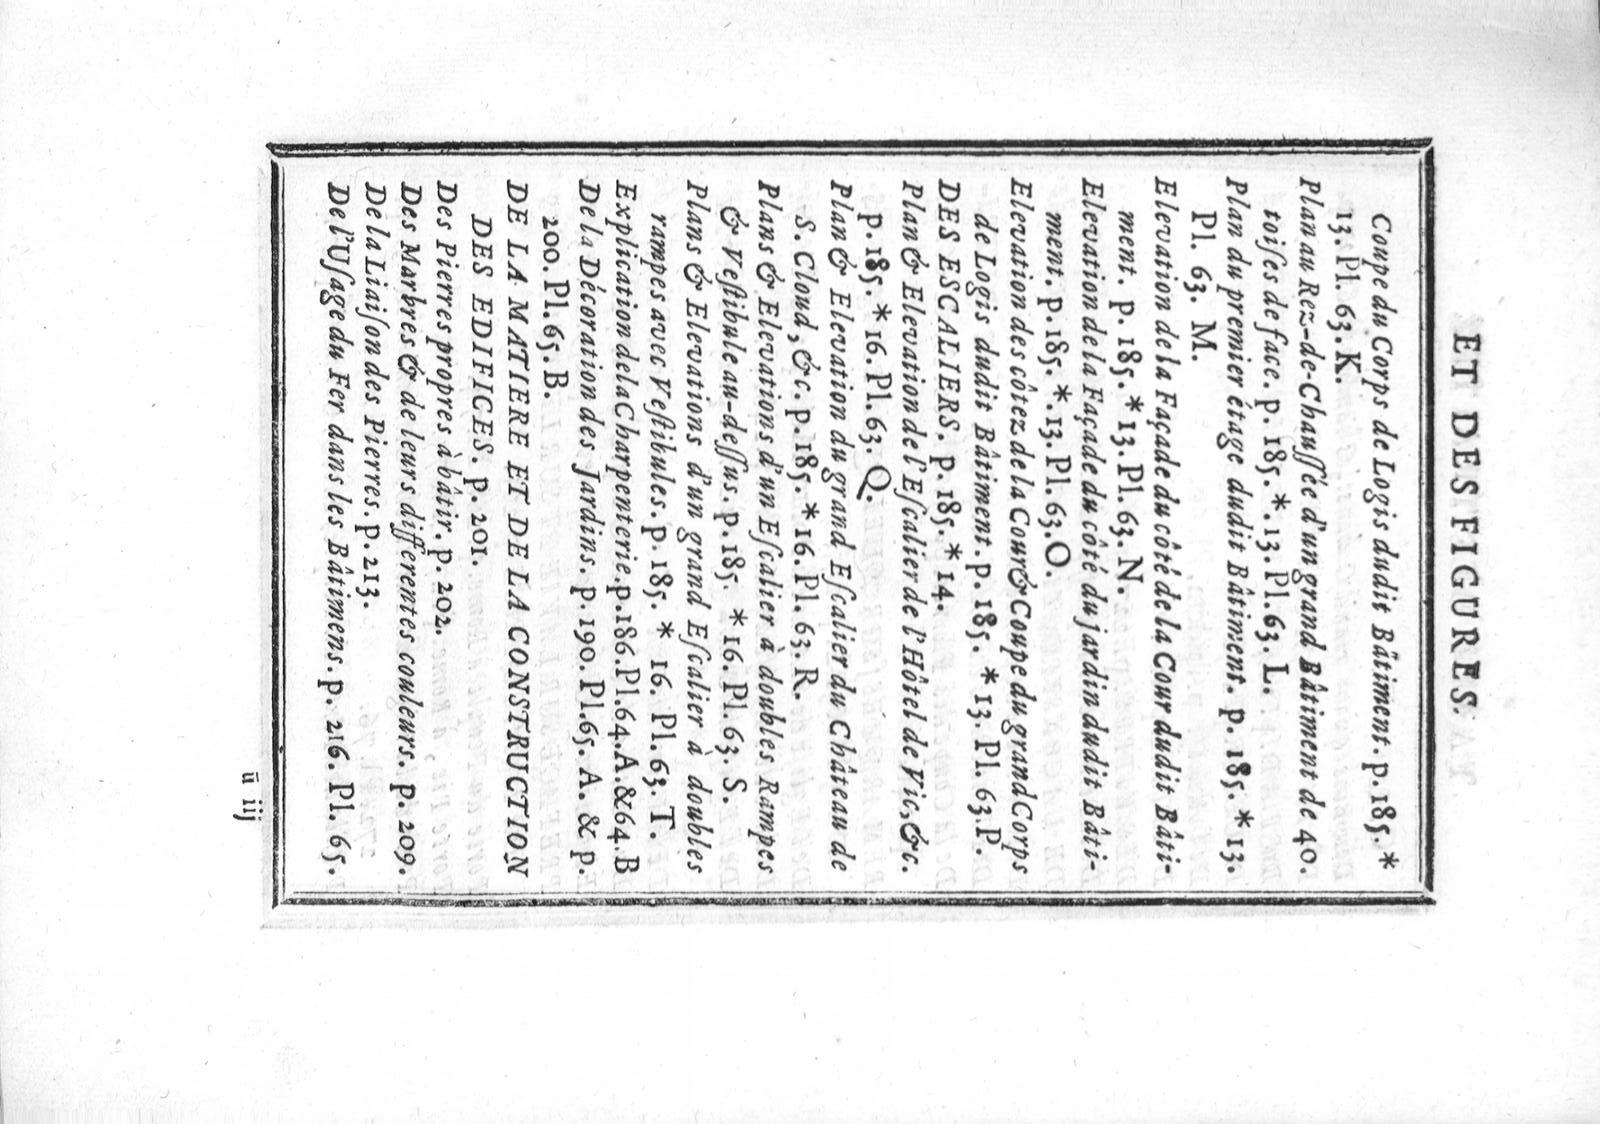 ET DES FIGURES.
Coupe du Corps de Logis dudit Bâtiment. p. 185. *
13. Pl. 63. K.
Plan au Rez-de-Chauſſée d'un grand Bâtiment de 40.
toiſes de face. p. 185. *. 13. Pl. 63. L.
Plan du premier étage dudit Bâtiment. p. 185. * 13.
Pl. 63. M.
Elevation de la Façade du côté de la Cour dudit Bâti-
ment. p. 185. * 13. Pl. 63. N.
Elevation de la Façade du côté du jardin dudit Bâti-
ment. p. 185. *. 13. Pl. 63. O.
Elevation des côtez de la Cour & Coupe du grand Corps
de Logis dudit Bâtiment. p. 185. * 13. Pl. 63. P.
DES ESCALIERS. p. 185. * 14.
Plan & Elevation de l'Eſcalier de l'Hôtel de Vic, &c.
p. 185. * 16. Pl. 63. Q.
Plan & Elevation du grand Eſcalier du Château de
S. Cloud, &c. p. 185. * 16. Pl. 63. R.
Plans & Elevations d'un Eſcalier à doubles Rampes
& Veſtibule au-deſſus. p. 185. * 16. Pl. 63. S.
Plans & Elevations d'un grand Eſcalier à doubles
rampes avec Veſtibules. p. 185. * 16. Pl. 63. T.
Explication de la Charpenterie. p. 186. Pl. 64. A. & 64. B
De la Décoration des Jardins. p. 190. Pl. 65. A. & p.
200. Pl. 65. B.
DE LA MATIERE ET DE LA CONSTRUCTION
DES EDIFICES. p. 201.
Des Pierres propres à bâtir. p. 202.
Des Marbres & de leurs differentes couleurs. p. 209.
De la Liaiſon des Pierres. p. 213.
De l'Uſage du Fer dans les Bâtimens. p. 216. Pl. 65.
ū iij